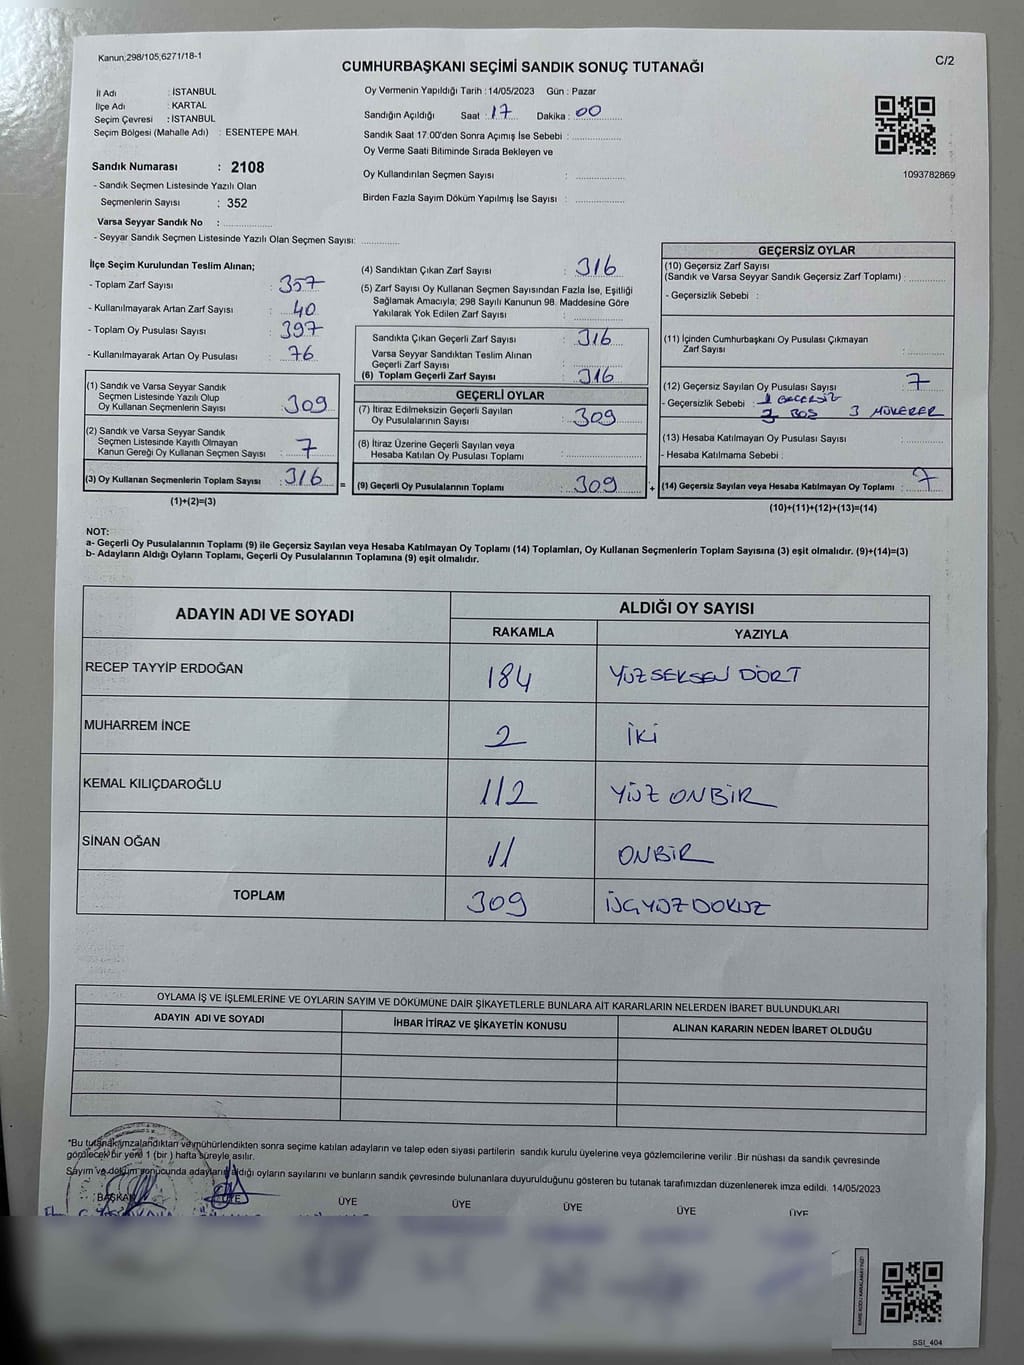 Kanun,298/105,6271/18-1
C/2
CUMHURBAŞKANI SEÇİMİ SANDIK SONUÇ TUTANAĞI
İl Adı : İSTANBUL
İlçe Adı : KARTAL
Seçim Çevresi : İSTANBUL
Seçim Bölgesi (Mahalle Adı) : ESENTEPE MAH.
Sandık Numarası : 2108
- Sandık Seçmen Listesinde Yazılı Olan
Seçmenlerin Sayısı : 352
Varsa Seyyar Sandık No :
- Seyyar Sandık Seçmen Listesinde Yazılı Olan Seçmen Sayısı:
Oy Vermenin Yapıldığı Tarih : 14/05/2023 Gün : Pazar
Sandığın Açıldığı Saat : 17 Dakika : 00
Sandık Saat 17.00'den Sonra Açımış İse Sebebi :
Oy Verme Saati Bitiminde Sırada Bekleyen ve
Oy Kullandırılan Seçmen Sayısı :
Birden Fazla Sayım Döküm Yapılmış İse Sayısı :
1093782869
İlçe Seçim Kurulundan Teslim Alınan;
- Toplam Zarf Sayısı : 357
- Kullanılmayarak Artan Zarf Sayısı : 40
- Toplam Oy Pusulası Sayısı : 397
- Kullanılmayarak Artan Oy Pusulası : 76
(1) Sandık ve Varsa Seyyar Sandık
Seçmen Listesinde Yazılı Olup
Oy Kullanan Seçmenlerin Sayısı : 309
(2) Sandık ve Varsa Seyyar Sandık
Seçmen Listesinde Kayıtlı Olmayan
Kanun Gereği Oy Kullanan Seçmen Sayısı : 7
(3) Oy Kullanan Seçmenlerin Toplam Sayısı : 316
(1)+(2)=(3)
(4) Sandıktan Çıkan Zarf Sayısı : 316
(5) Zarf Sayısı Oy Kullanan Seçmen Sayısından Fazla İse, Eşitliği
Sağlamak Amacıyla, 298 Sayılı Kanunun 98. Maddesine Göre
Yakılarak Yok Edilen Zarf Sayısı :
Sandıkta Çıkan Geçerli Zarf Sayısı : 316
Varsa Seyyar Sandıktan Teslim Alınan
Geçerli Zarf Sayısı :
(6) Toplam Geçerli Zarf Sayısı : 316
GEÇERLİ OYLAR
(7) İtiraz Edilmeksizin Geçerli Sayılan
Oy Pusulalarının Sayısı : 309
(8) İtiraz Üzerine Geçerli Sayılan veya
Hesaba Katılan Oy Pusulası Toplamı :
= (9) Geçerli Oy Pusulalarının Toplamı : 309 +
GEÇERSİZ OYLAR
(10) Geçersiz Zarf Sayısı
(Sandık ve Varsa Seyyar Sandık Geçersiz Zarf Toplamı) :
- Geçersizlik Sebebi :
(11) İçinden Cumhurbaşkanı Oy Pusulası Çıkmayan
Zarf Sayısı :
(12) Geçersiz Sayılan Oy Pusulası Sayısı : 7
- Geçersizlik Sebebi : 1 GEÇERSİZ
3 BOŞ 3 MÜKERER
(13) Hesaba Katılmayan Oy Pusulası Sayısı :
- Hesaba Katılmama Sebebi :
(14) Geçersiz Sayılan veya Hesaba Katılmayan Oy Toplamı : 7
(10)+(11)+(12)+(13)=(14)
NOT:
a- Geçerli Oy Pusulalarının Toplamı (9) ile Geçersiz Sayılan veya Hesaba Katılmayan Oy Toplamı (14) Toplamları, Oy Kullanan Seçmenlerin Toplam Sayısına (3) eşit olmalıdır. (9)+(14)=(3)
b- Adayların Aldığı Oyların Toplamı, Geçerli Oy Pusulalarının Toplamına (9) eşit olmalıdır.
ADAYIN ADI VE SOYADI
ALDIĞI OY SAYISI
RAKAMLA YAZIYLA
RECEP TAYYİP ERDOĞAN 184 YÜZ SEKSEN DÖRT
MUHARREM İNCE 2 İKİ
KEMAL KILIÇDAROĞLU 112 YÜZ ONBİR
SİNAN OĞAN 11 ONBİR
TOPLAM 309 ÜÇYÜZ DOKUZ
OYLAMA İŞ VE İŞLEMLERİNE VE OYLARIN SAYIM VE DÖKÜMÜNE DAİR ŞİKAYETLERLE BUNLARA AİT KARARLARIN NELERDEN İBARET BULUNDUKLARI
ADAYIN ADI VE SOYADI İHBAR İTİRAZ VE ŞİKAYETİN KONUSU ALINAN KARARIN NEDEN İBARET OLDUĞU
"Bu tutanak imzalandıktan ve mühürlendikten sonra seçime katılan adayların ve talep eden siyasi partilerin sandık kurulu üyelerine veya gözlemcilerine verilir .Bir nüshası da sandık çevresinde
görülecek bir yere 1 (bir ) hafta süreyle asılır.
Sayım ve döküm sonucunda adayların aldığı oyların sayılarını ve bunların sandık çevresinde bulunanlara duyurulduğunu gösteren bu tutanak tarafımızdan düzenlenerek imza edildi. 14/05/2023
BAŞKAN ÜYE ÜYE ÜYE ÜYE ÜYE ÜYE
SSI_404